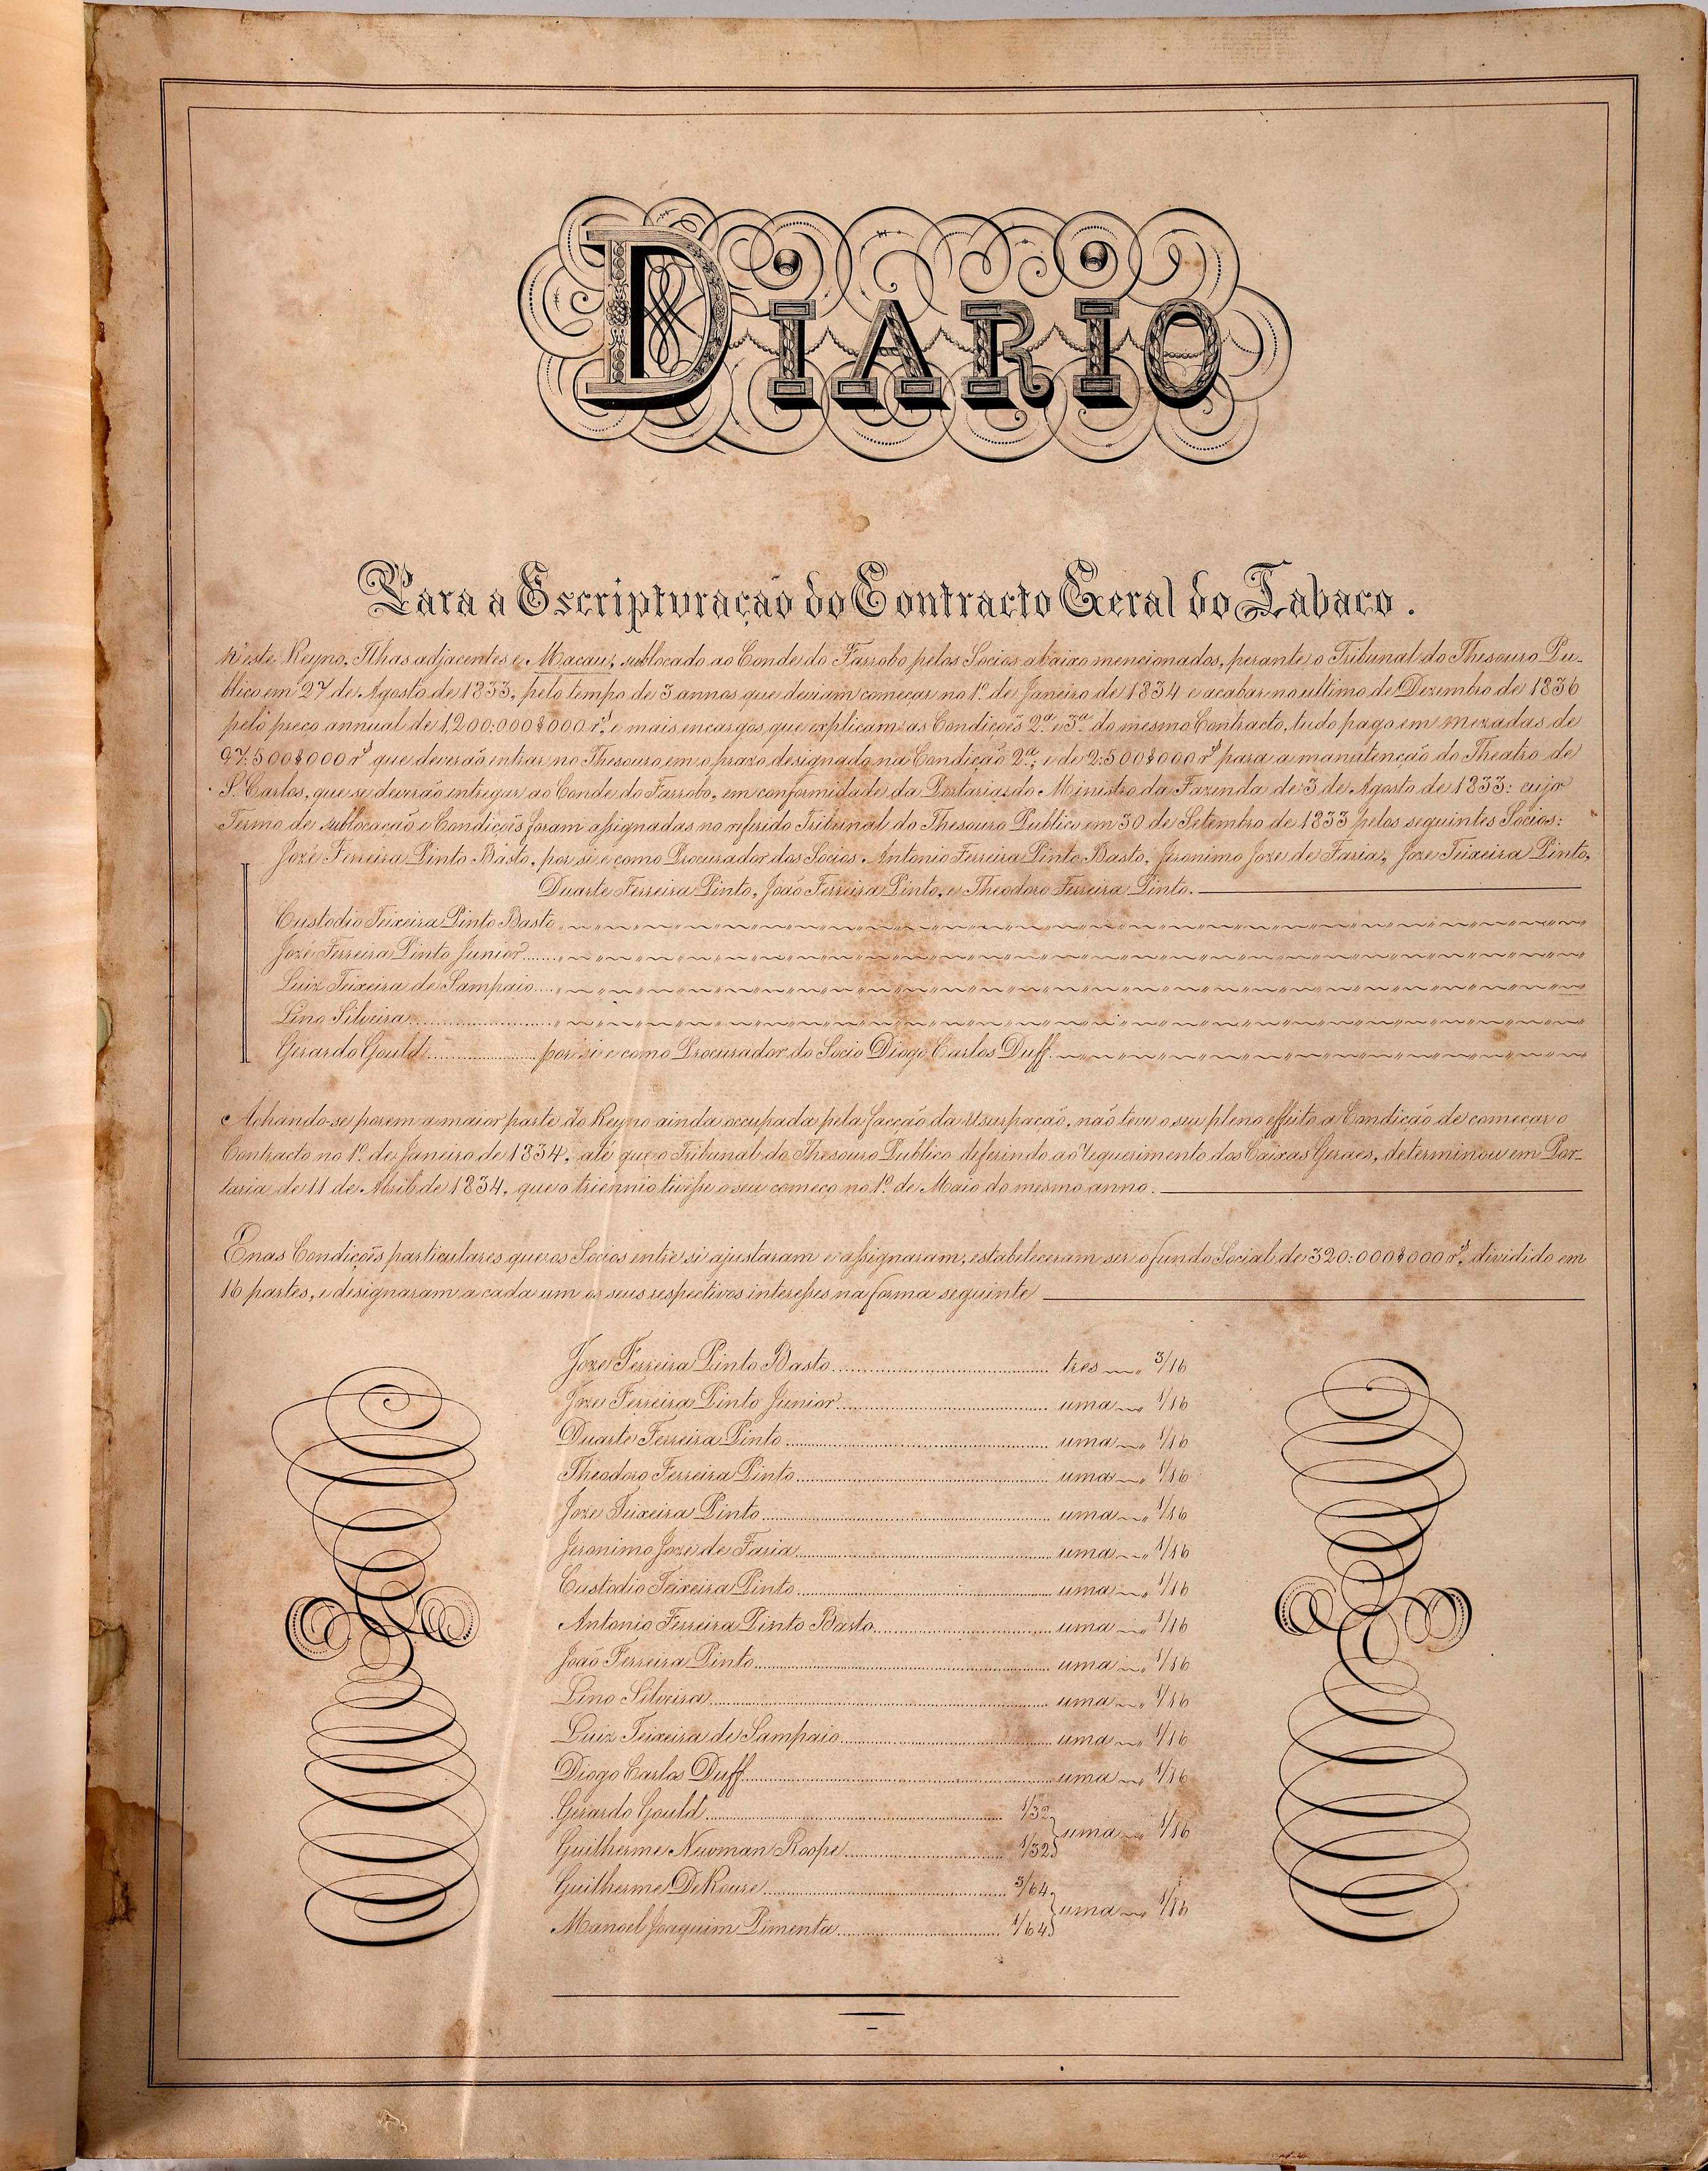 DIARIO
Para a Escripturação do Contracto Geral do Tabaco.
N'este Reyno, Ilhas adjacentes e Macau, sublocado ao Conde do Farrobo pelos Socios abaixo mencionados, perante o Tribunal do Thesouro Pu-
blico em 27 de Agosto de 1833, pelo tempo de 3 annos que deviam começar no 1º. de Janeiro de 1834 e acabar no ultimo de Dezembro de 1836
pelo preço annual de 1,200:000$000 rs, e mais encargos que explicam as Condiçoẽs 2ª. e 3ª. do mesmo Contracto, tudo pago em mezadas de
97:500$000 rs que deverão entrar no Thesouro em o prazo designado na Condição 2ª.; e de 2:500$000 rs para a manutenção do Theatro de
S. Carlos, que se deverão entregar ao Conde do Farrobo, em conformidade da Portaria do Ministro da Fazenda de 3 de Agosto de 1833: cujo
Termo de sublocação e Condiçoẽs foram assignadas no referido Tribunal do Thesouro Publico em 30 de Setembro de 1833 pelos seguintes Socios:
Jozé Ferreira Pinto Basto, por si e como Procurador dos Socios Antonio Ferreira Pinto Basto, Jeronimo Joze de Faria, Joze Teixeira Pinto,
Duarte Ferreira Pinto, João Ferreira Pinto, e Theodoro Ferreira Pinto.
Custodio Teixeira Pinto Basto
Jozé Ferreira Pinto Junior
Luiz Teixeira de Sampaio
Lino Silveira
Gerardo Gould por si e como Procurador do Socio Diogo Carlos Duff
Achando-se porem a maior parte do Reyno ainda occupada pela facção da Usurpação, não teve o seu pleno effeito a Condição de começar o
Contracto no 1º. de Janeiro de 1834, até que o Tribunal do Thesouro Publico deferindo ao requerimento dos Caixas Geraes, determinou em Por-
taria de 11 de Abril de 1834, que o triennio tivesse o seu começo no 1º. de Maio do mesmo anno.
E nas Condiçoẽs particulares que os Socios entre si ajustaram e assignaram, estabeleceram ser o fundo Social de 320:000$000 rs, dividido em
16 partes, e designaram a cada um os seus respectivos interesses na forma seguinte
Joze Ferreira Pinto Basto tres 3/16
Joze Ferreira Pinto Junior uma 1/16
Duarte Ferreira Pinto uma 1/16
Theodoro Ferreira Pinto uma 1/16
Joze Teixeira Pinto uma 1/16
Jeronimo Joze de Faria uma 1/16
Custodio Teixeira Pinto uma 1/16
Antonio Ferreira Pinto Basto uma 1/16
João Ferreira Pinto uma 1/16
Lino Silveira uma 1/16
Luiz Teixeira de Sampaio uma 1/16
Diogo Carlos Duff uma 1/16
Gerardo Gould 1/32
uma 1/16
Guilherme Newman Roope 1/32
Guilherme DeRoure 3/64
uma 1/16
Manoel Joaquim Pimenta 1/64